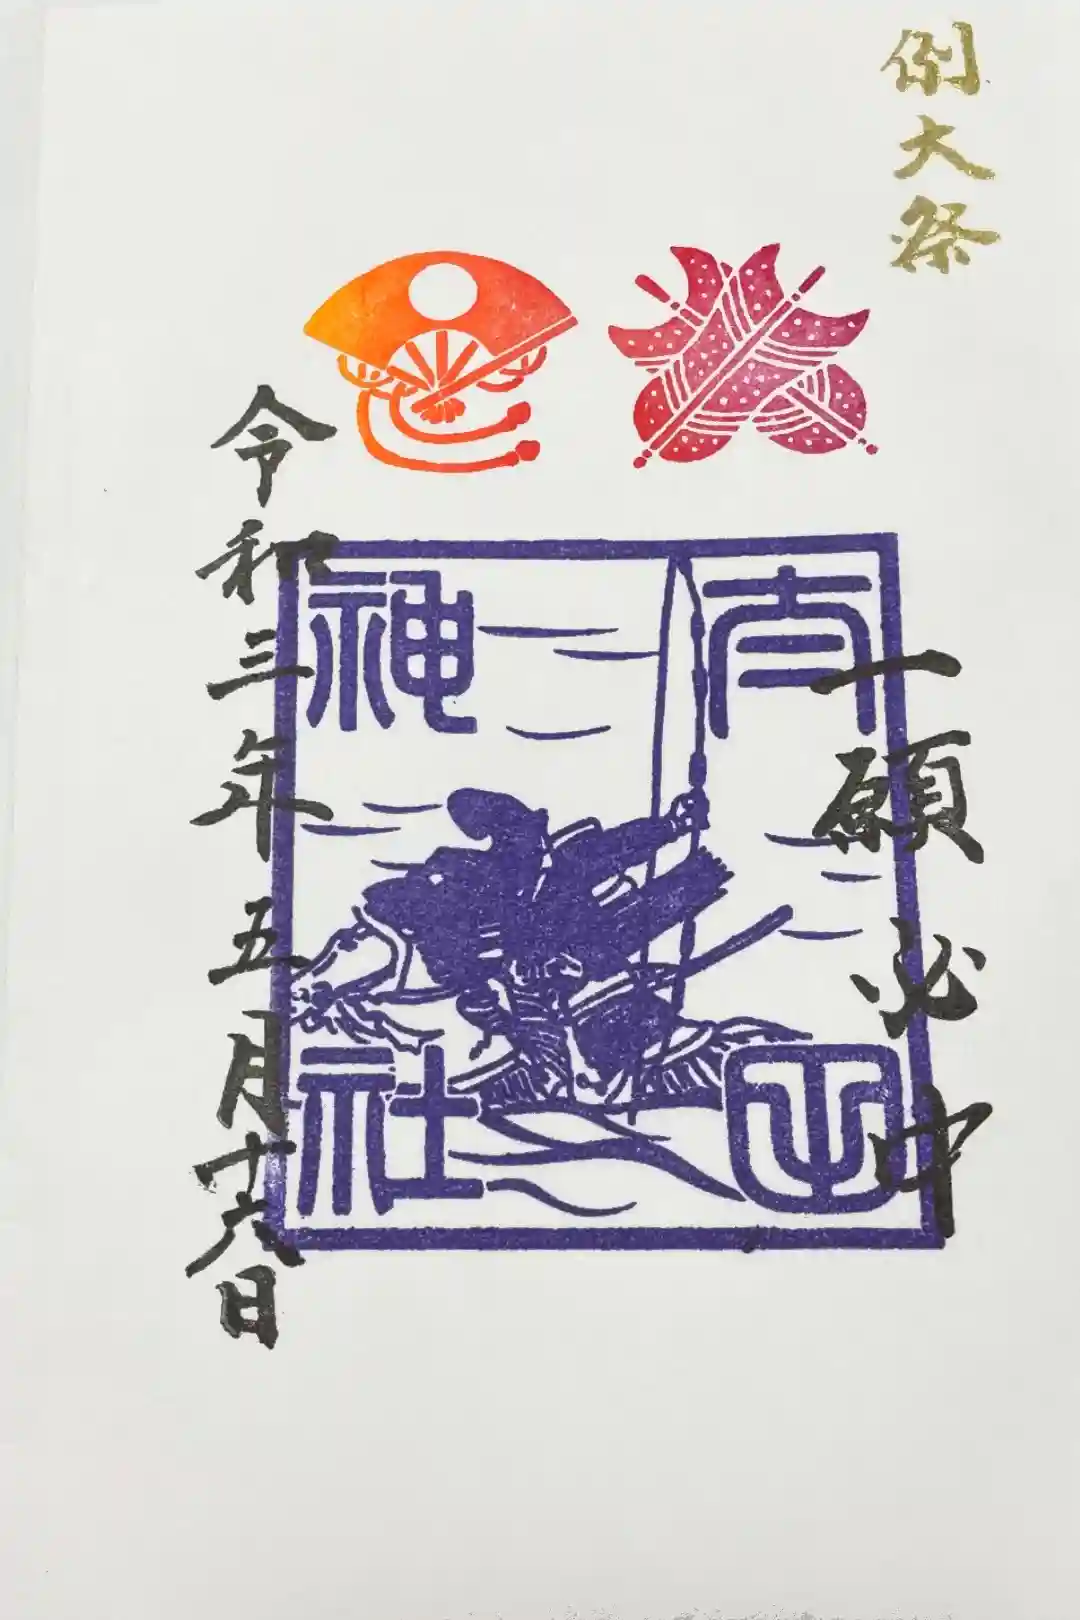 例大祭
一願必中
神社
令和三年五月十六日